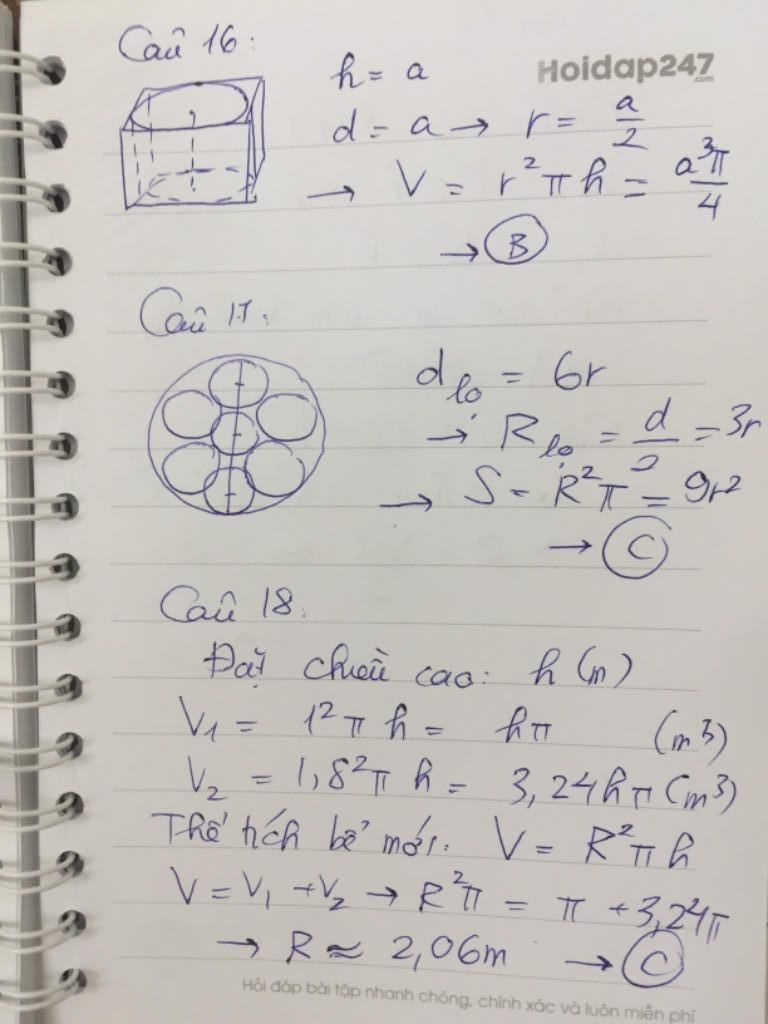 Câu 16:
Hoidap247
.com
h = a
d = a → r = a/2
→ V = r²πh = a³π/4
→ B
Câu 17:
d lọ = 6r
→ R lọ = d/2 = 3r
→ S = R²π = 9r²
→ C
Câu 18:
Đặt chiều cao: h (m)
V₁ = 1²πh = hπ (m³)
V₂ = 1,8²πh = 3,24hπ (m³)
Thể tích bể mới: V = R²πh
V = V₁ + V₂ → R²π = π + 3,24π
→ R ≈ 2,06m → C
Hỏi đáp bài tập nhanh chóng, chính xác và luôn miễn phí